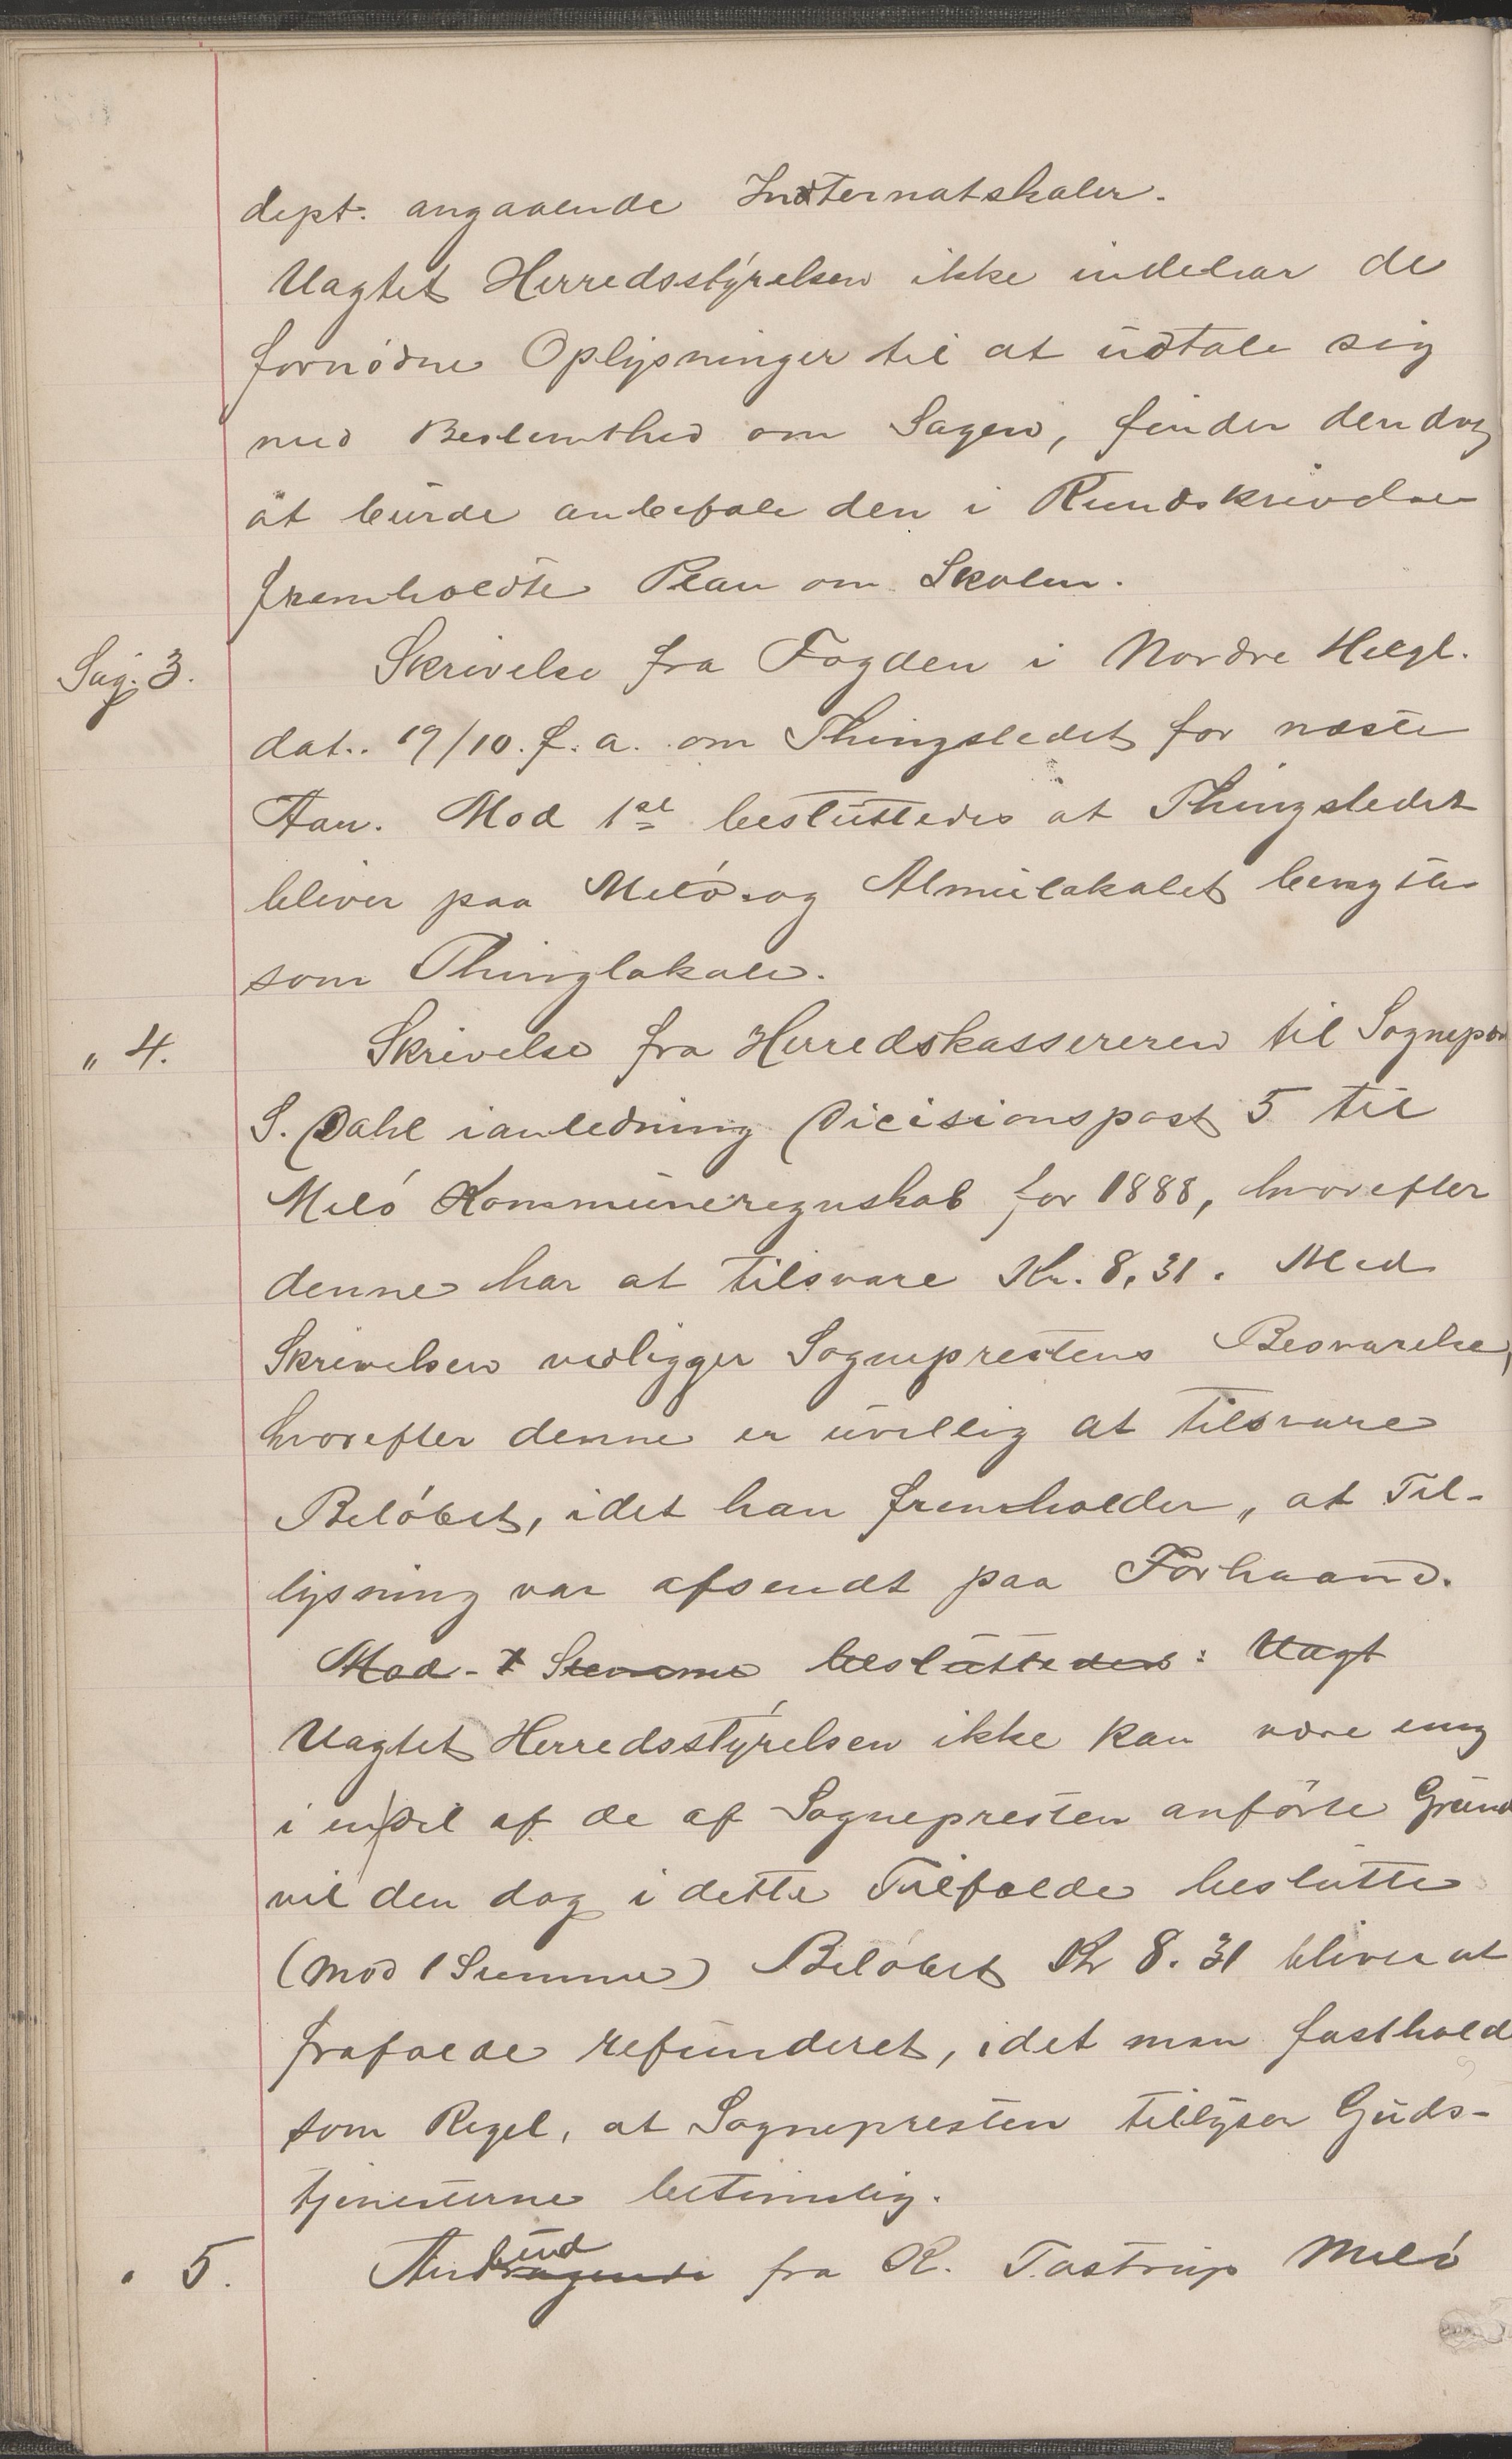 dept. angaaende Internatskoler.
Uagtet Herredsstyrelsen ikke indehar de
fornødne Oplysninger til at udtale sig
med Bestemthed om Sagen, finder den dog
at burde anbefale den i Rundskrivelsen
fremholdte Plan om Skolen.
Sag. 3.
Skrivelse fra Fogden i Nordre Helgl.
dat. 19/10. f. a. om Thingstedet for næste
Aar. Mod 1 st. besluttedes at Thingstedet
bliver paa Melø og Almuelokalet benyttes
som Thinglokale.
" 4.
Skrivelse fra Herredskassereren til Sognepr
S. Dahl i anledning Dicisionspost 5 til
Melø Kommuneregnskab for 1888, hvorefter
denne har at tilsvare Kr. 8,31. Med
Skrivelsen vedligger Sogneprestens Besvarelse,
hvorefter denne er uvillig at tilsvare
Beløbet, idet han fremholder, at Til-
lysning var afsendt paa Forhaand.
Mod - 1 Stemme besluttedes: Uagt
Uagtet Herredsstyrelsen ikke kan være enig
i en del af de af Sognepresten anførte Grund
vil den dog i dette Tilfælde beslutte
(mod 1 Stemme) Beløbet Kr 8.31 bliver at
frafalde refunderet, idet man fasthold
som Regel, at Sognepresten tillyser Guds-
tjenesterne betimelig.
" 5.
Anbud fra R. Tostrup Melø